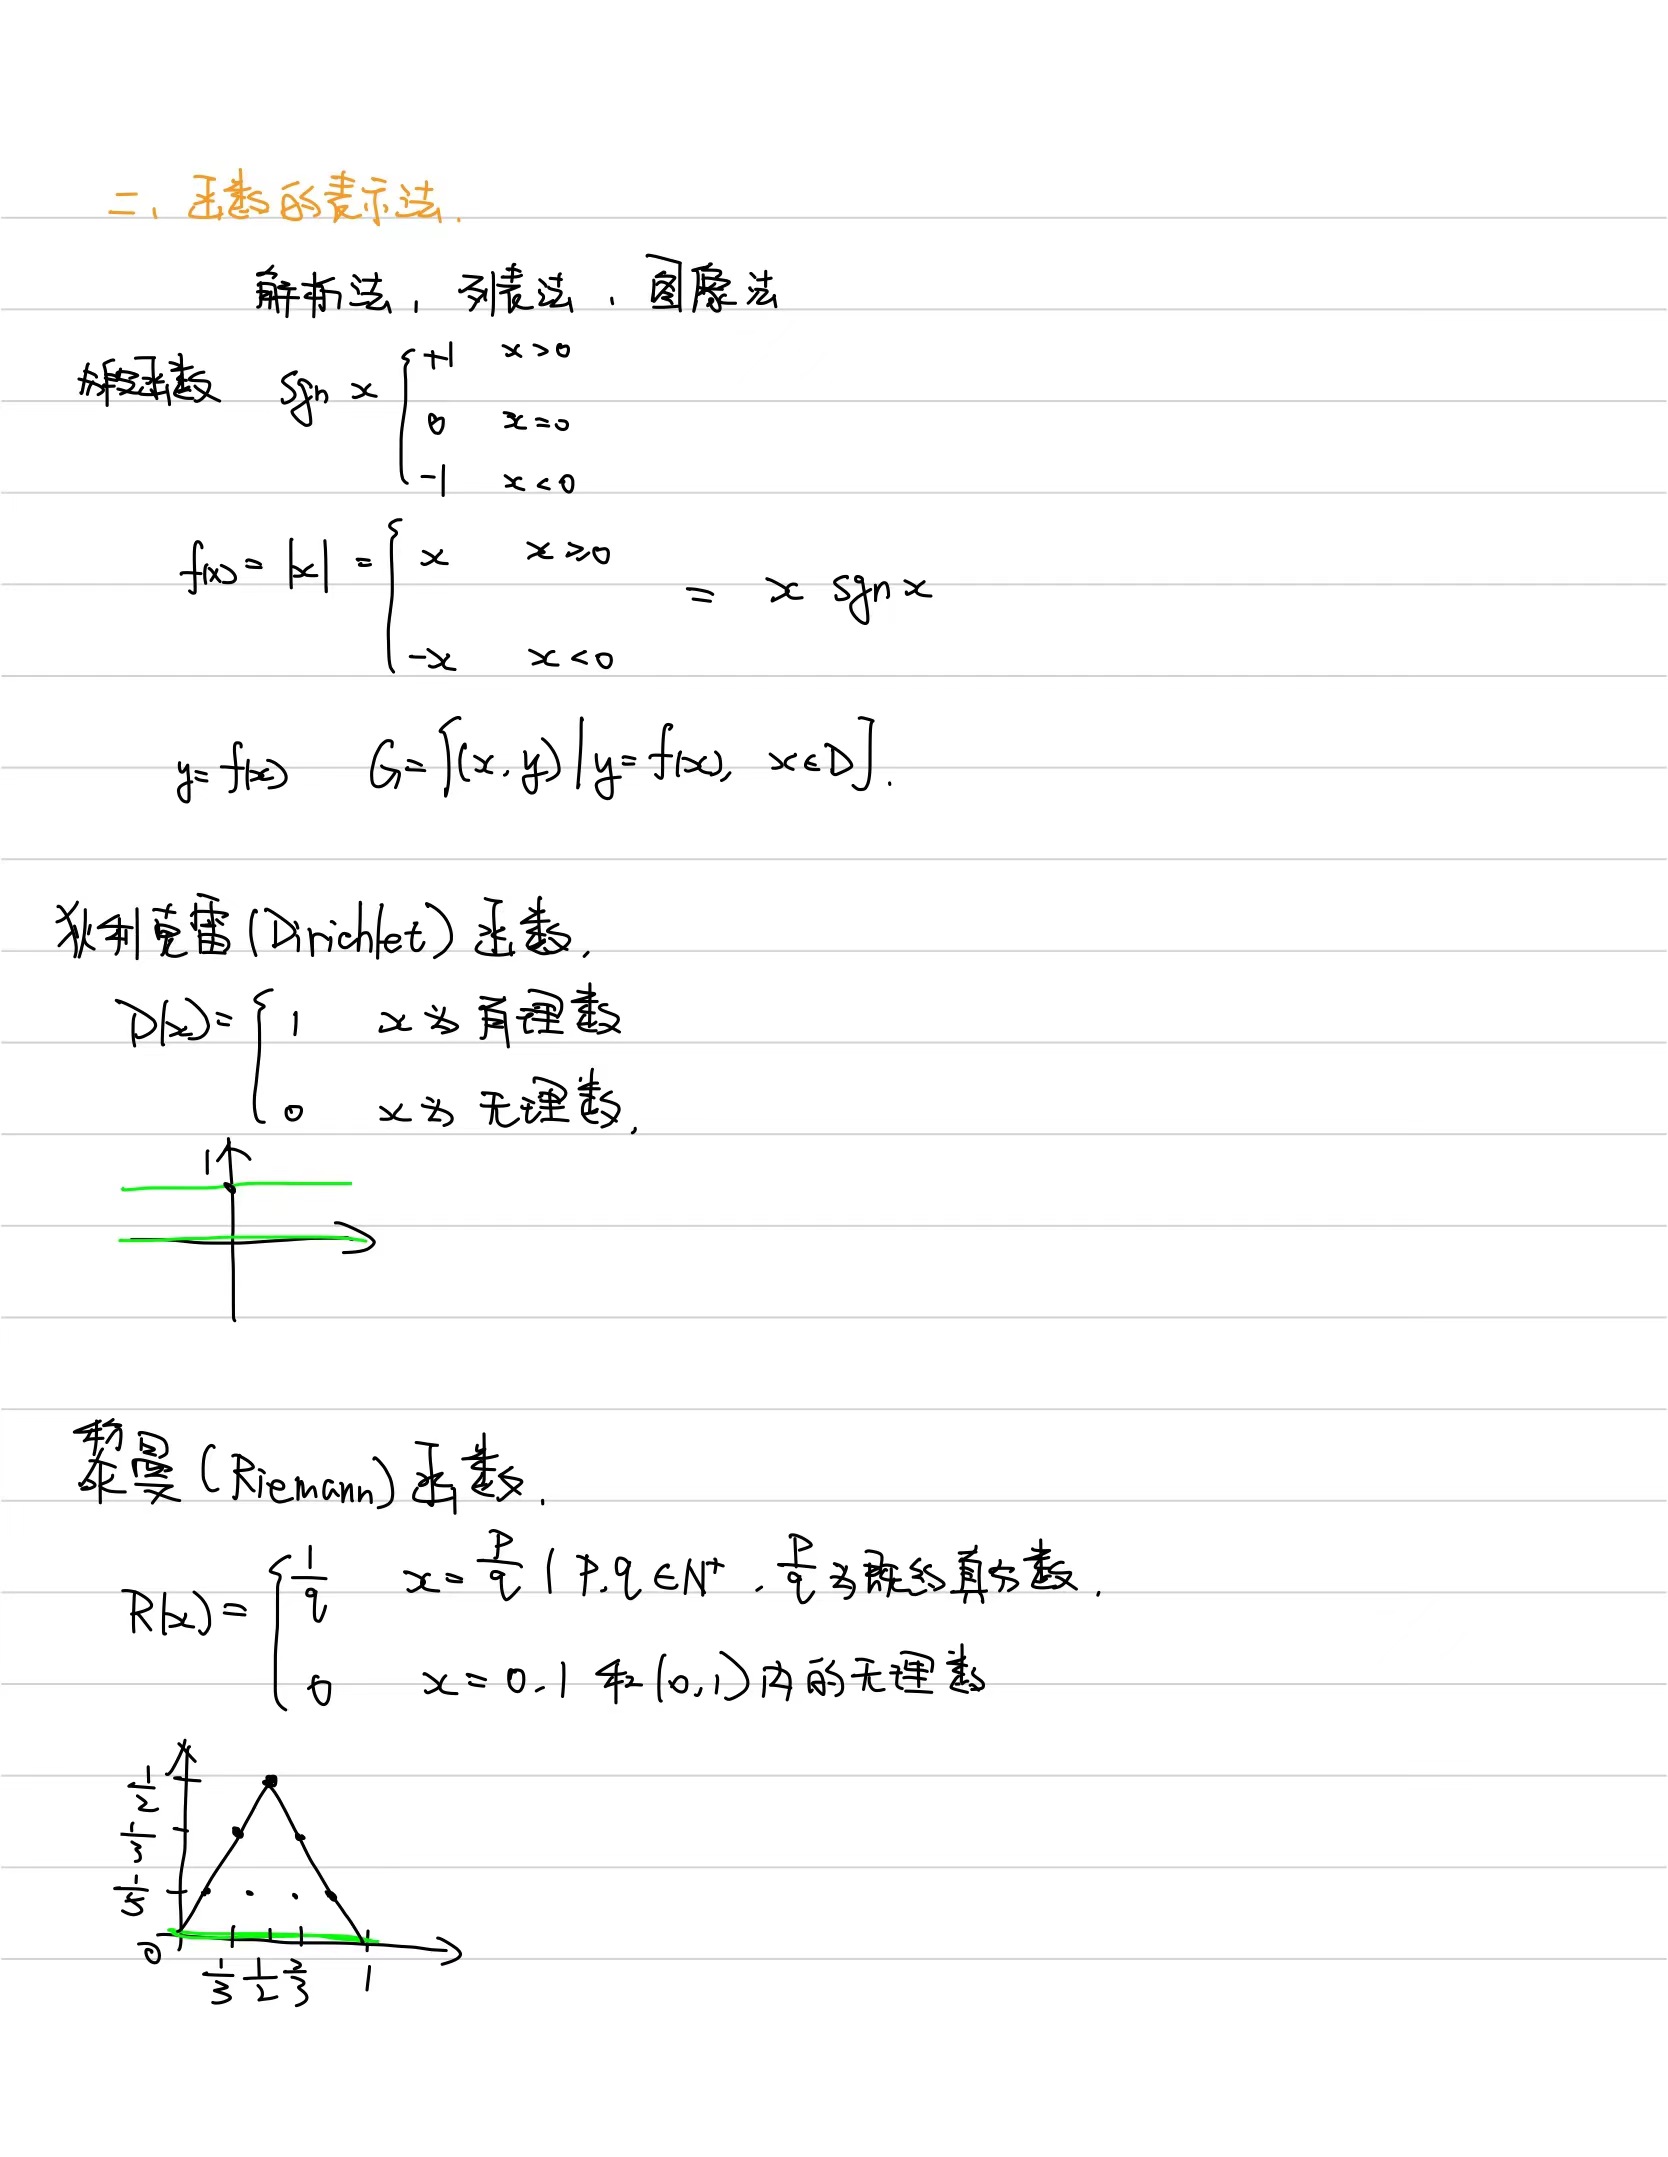 二、函数的表示法.
解析法, 列表法, 图像法
分段函数 sgn x { +1 x>0
0 x=0
-1 x<0
f(x) = |x| = { x x≥0
-x x<0
= x sgn x
y=f(x) G=[(x,y)|y=f(x), x∈D].
狄利克雷(Dirichlet)函数.
D(x)= { 1 x为有理数
0 x为无理数.
1
黎曼(Riemann)函数.
R(x)= { 1/q x=p/q (p,q∈N⁺, p/q为既约真分数.
0 x=0,1和(0,1)内的无理数
1/2
1/3
1/5
0 1/3 1/2 2/3 1